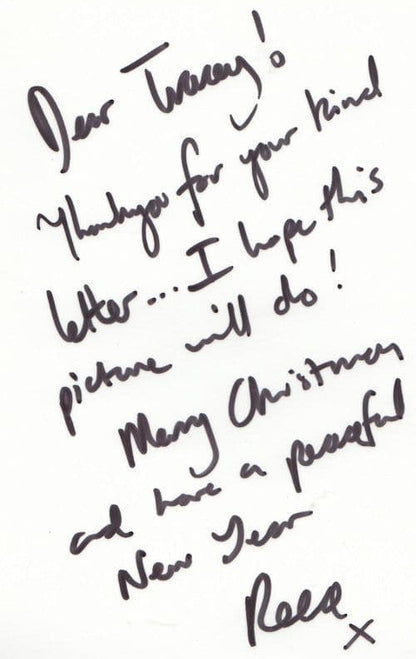 Dear Tracey!
Thankyou for your kind
letter... I hope this
picture will do!
Merry Christmas
and have a peaceful
New Year
x